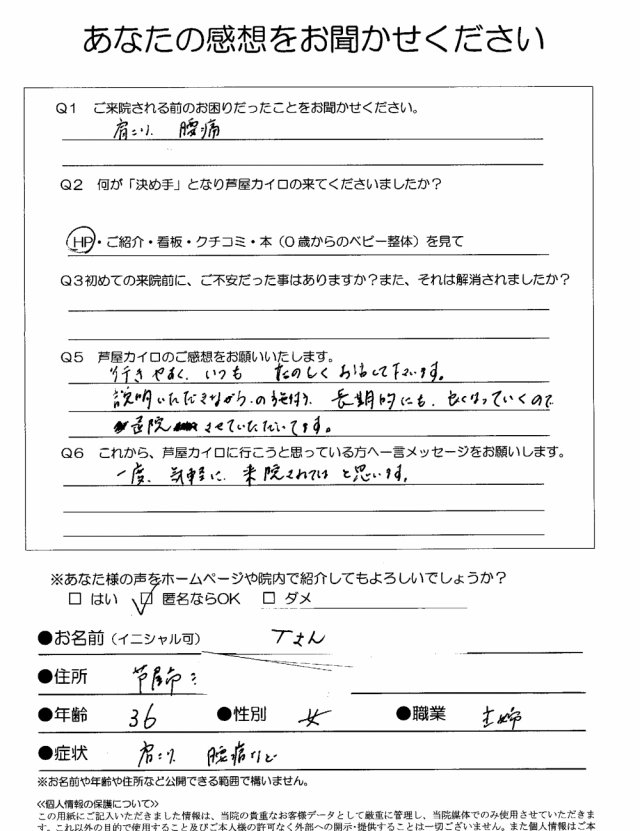 あなたの感想をお聞かせください
Q1 ご来院される前のお困りだったことをお聞かせください。
肩こり、腰痛
Q2 何が「決め手」となり芦屋カイロの来てくださいましたか？
HP・ご紹介・看板・クチコミ・本（0歳からのベビー整体）を見て
Q3初めての来院前に、ご不安だった事はありますか？また、それは解消されましたか？
Q5 芦屋カイロのご感想をお願いいたします。
行きやすく、いつも たのしくお話して下さいます。
説明いただきながらの施術、長期的にも、良くなっていくので
通院させていただいてます。
Q6 これから、芦屋カイロに行こうと思っている方へ一言メッセージをお願いします。
一度、気軽に、来院されてはと思います。
※あなた様の声をホームページや院内で紹介してもよろしいでしょうか？
□ はい ☑ 匿名ならOK □ ダメ
●お名前（イニシャル可） Tさん
●住所 芦屋市
●年齢 36 ●性別 女 ●職業 主婦
●症状 肩こり 腰痛など
※お名前や年齢や住所など公開できる範囲で構いません。
≪個人情報の保護について≫
この用紙にご記入いただきました情報は、当院の貴重なお客様データとして厳重に管理し、当院媒体でのみ使用させていただきま
す。これ以外の目的で使用すること及びご本人様の許可なく外部への開示・提供することは一切ございません。また個人情報はご本